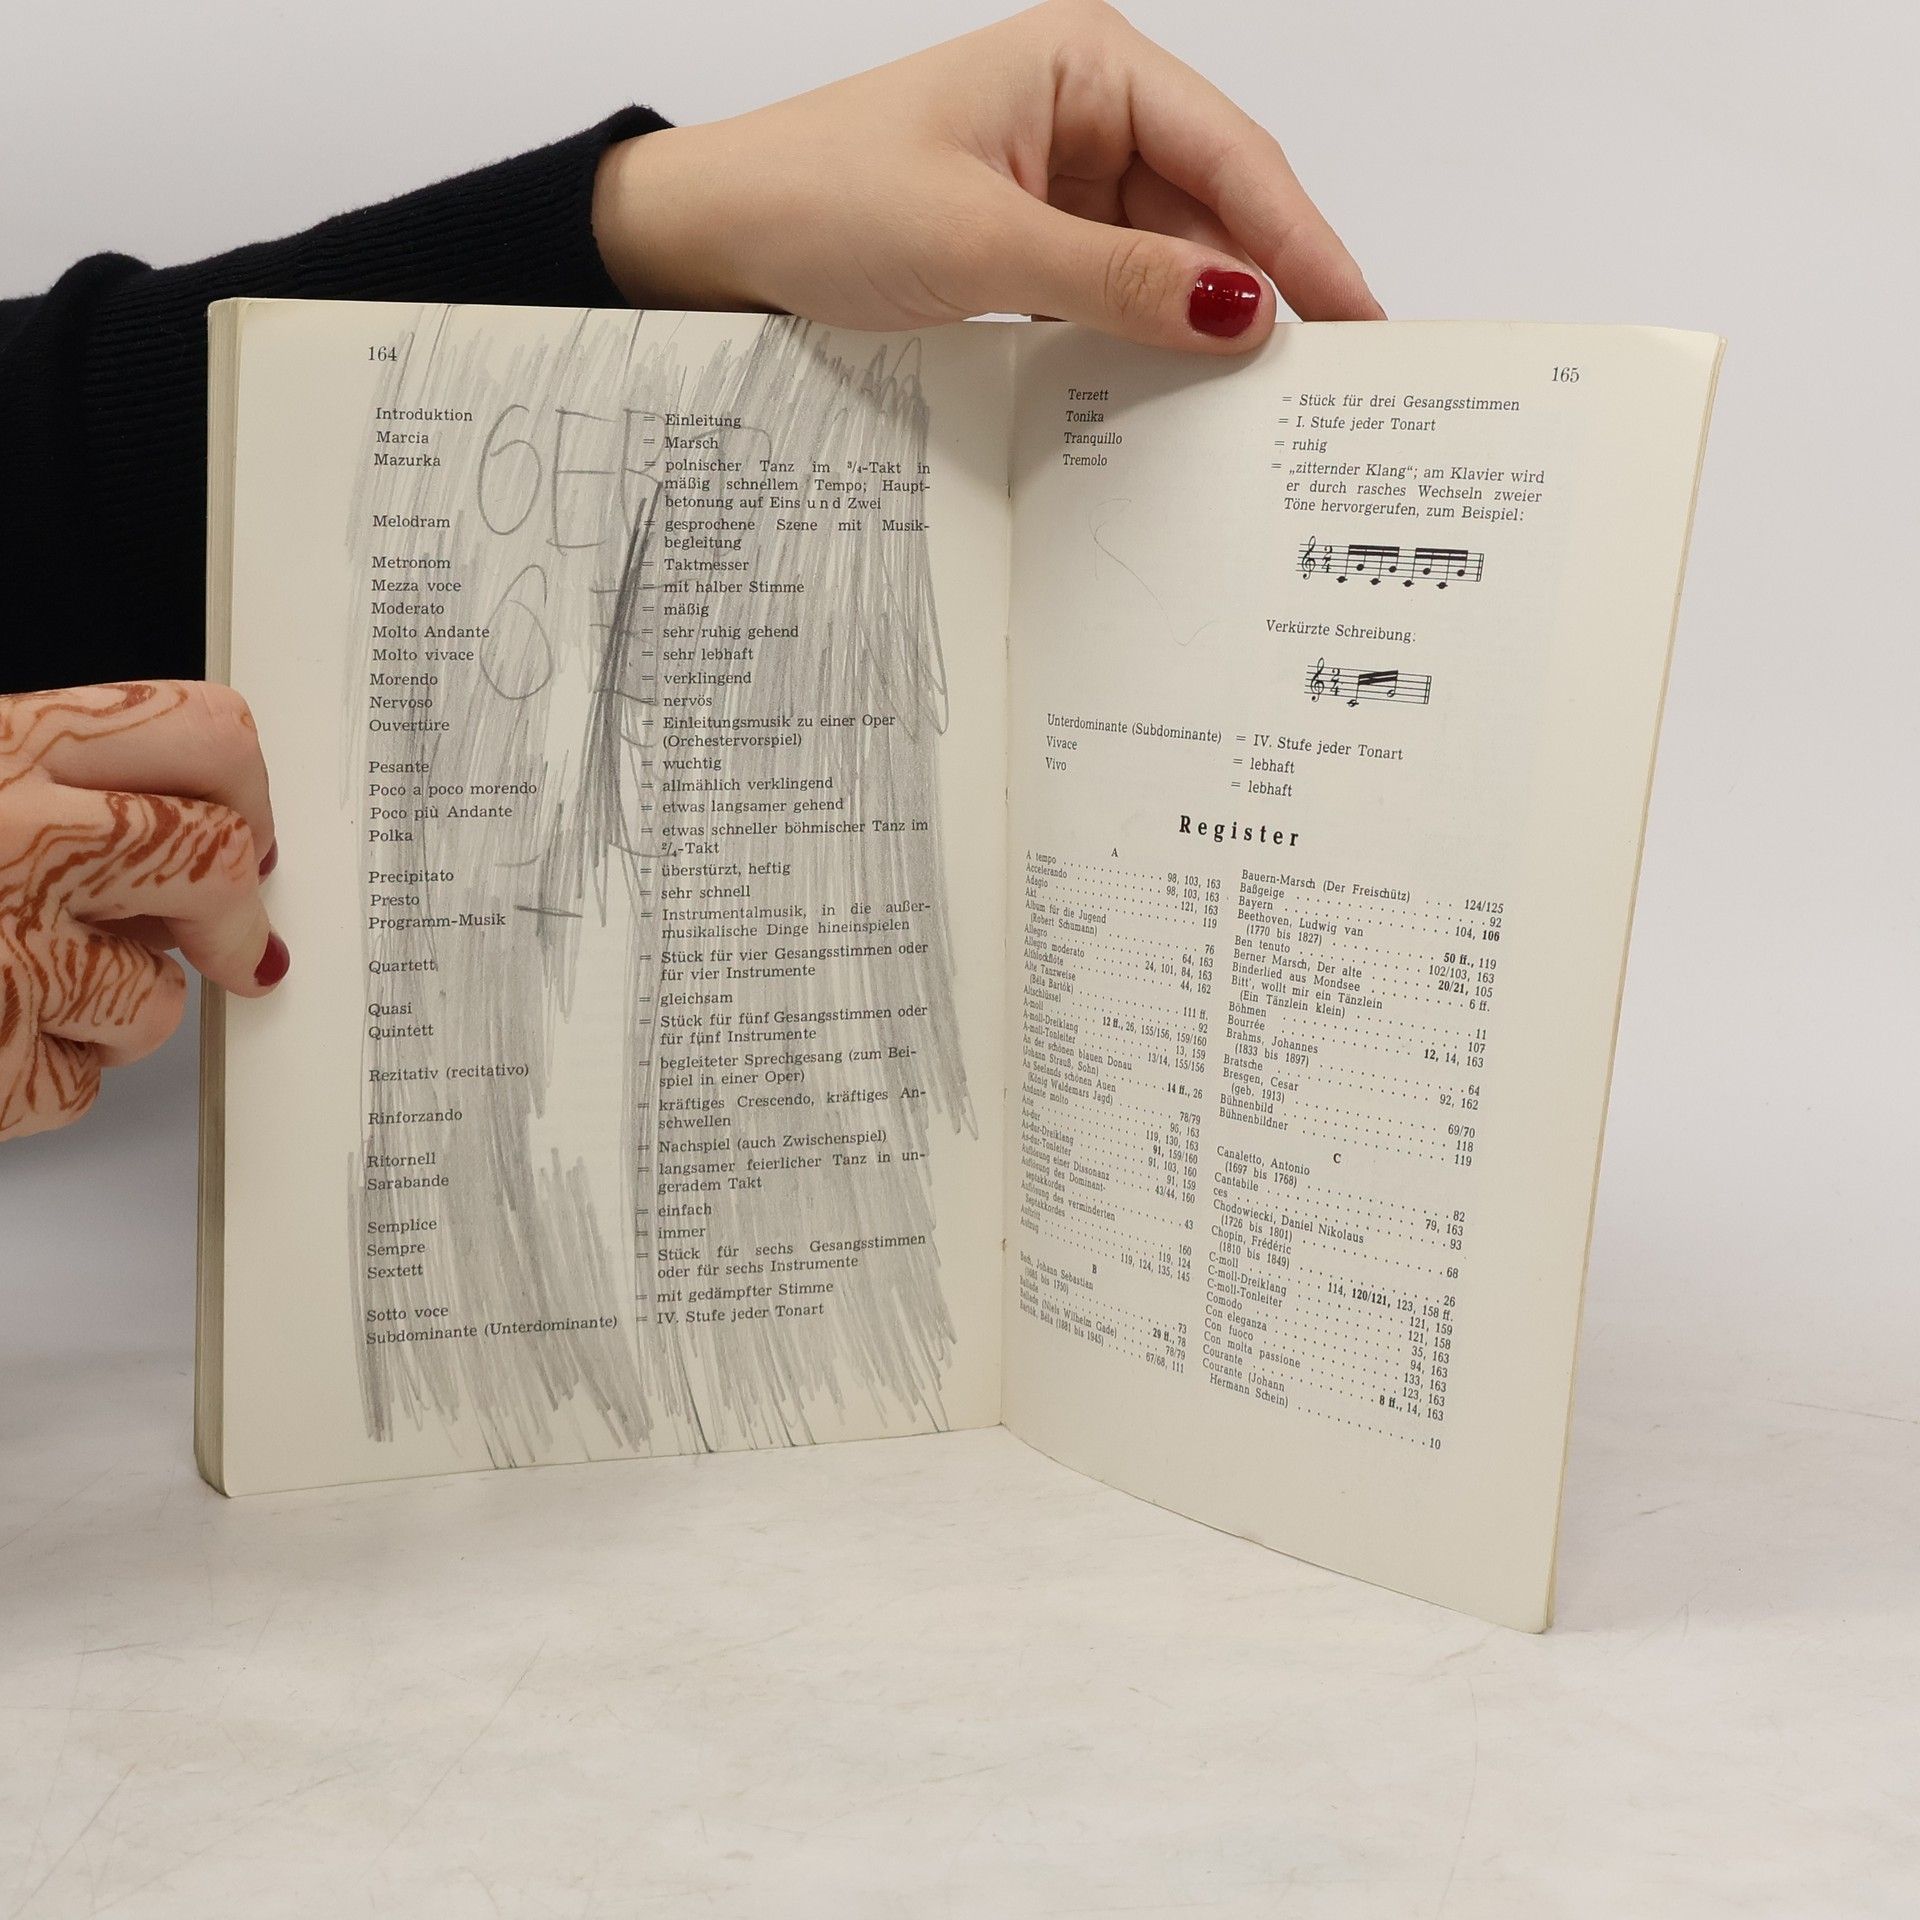 164
Introduktion = Einleitung
Marcia = Marsch
Mazurka = polnischer Tanz im ³/₄-Takt in
mäßig schnellem Tempo; Haupt-
betonung auf Eins und Zwei
Melodram = gesprochene Szene mit Musik-
begleitung
Metronom = Taktmesser
Mezza voce = mit halber Stimme
Moderato = mäßig
Molto Andante = sehr ruhig gehend
Molto vivace = sehr lebhaft
Morendo = verklingend
Nervoso = nervös
Ouvertüre = Einleitungsmusik zu einer Oper
(Orchestervorspiel)
Pesante = wuchtig
Poco a poco morendo = allmählich verklingend
Poco più Andante = etwas langsamer gehend
Polka = etwas schneller böhmischer Tanz im
²/₄-Takt
Precipitato = überstürzt, heftig
Presto = sehr schnell
Programm-Musik = Instrumentalmusik, in die außer-
musikalische Dinge hineinspielen
Quartett = Stück für vier Gesangsstimmen oder
für vier Instrumente
Quasi = gleichsam
Quintett = Stück für fünf Gesangsstimmen oder
für fünf Instrumente
Rezitativ (recitativo) = begleiteter Sprechgesang (zum Bei-
spiel in einer Oper)
Rinforzando = kräftiges Crescendo, kräftiges An-
schwellen
Ritornell = Nachspiel (auch Zwischenspiel)
Sarabande = langsamer feierlicher Tanz in un-
geradem Takt
Semplice = einfach
Sempre = immer
Sextett = Stück für sechs Gesangsstimmen
oder für sechs Instrumente
Sotto voce = mit gedämpfter Stimme
Subdominante (Unterdominante) = IV. Stufe jeder Tonart
165
Terzett = Stück für drei Gesangsstimmen
Tonika = I. Stufe jeder Tonart
Tranquillo = ruhig
Tremolo = „zitternder Klang“; am Klavier wird
er durch rasches Wechseln zweier
Töne hervorgerufen, zum Beispiel:
Verkürzte Schreibung:
Unterdominante (Subdominante) = IV. Stufe jeder Tonart
Vivace = lebhaft
Vivo = lebhaft
Register
A
A tempo . . . 98, 103, 163
Accelerando . . . 98, 103, 163
Adagio . . . 121, 163
Akt . . . 119
Album für die Jugend
(Robert Schumann) . . . 76
Allegro . . . 64, 163
Allegro moderato . . . 24, 101, 84, 163
Altblockflöte . . . 44, 162
Alte Tanzweise
(Béla Bartók) . . . 111 ff.
Altschlüssel . . . 92
A-moll . . . 12 ff., 26, 155/156, 159/160
A-moll-Dreiklang . . . 13, 159
A-moll-Tonleiter . . . 13/14, 155/156
An der schönen blauen Donau
(Johann Strauß, Sohn) . . . 14 ff., 26
An Seelands schönen Auen
(König Waldemars Jagd) . . . 78/79
Andante molto . . . 96, 163
Arie . . . 119, 130, 163
As-dur . . . 91, 159/160
As-dur-Dreiklang . . . 91, 103, 160
As-dur-Tonleiter . . . 91, 159
Auflösung einer Dissonanz . . . 43/44, 160
Auflösung des Dominant-
septakkordes . . . 43
Auflösung des verminderten
Septakkordes . . . 160
Auftritt . . . 119, 124
Aufzug . . . 119, 124, 135, 145
B
Bach, Johann Sebastian
(1685 bis 1750) . . . 73
Ballade . . . 29 ff., 78
Ballade (Niels Wilhelm Gade) . . . 78/79
Bartók, Béla (1881 bis 1945) . . . 67/68, 111
Bauern-Marsch (Der Freischütz) . . . 124/125
Baßgeige . . . 92
Bayern . . . 104, 106
Beethoven, Ludwig van
(1770 bis 1827) . . . 50 ff., 119
Ben tenuto . . . 102/103, 163
Berner Marsch, Der alte . . . 20/21, 105
Binderlied aus Mondsee . . . 6 ff.
Bitt', wollt mir ein Tänzlein
(Ein Tänzlein klein) . . . 11
Böhmen . . . 107
Bourrée . . . 12, 14, 163
Brahms, Johannes
(1833 bis 1897) . . . 64
Bratsche . . . 92, 162
Bresgen, Cesar
(geb. 1913) . . . 69/70
Bühnenbild . . . 118
Bühnenbildner . . . 119
C
Canaletto, Antonio
(1697 bis 1768) . . . 82
Cantabile . . . 79, 163
ces . . . 93
Chodowiecki, Daniel Nikolaus
(1726 bis 1801) . . . 68
Chopin, Frédéric
(1810 bis 1849) . . . 26
C-moll . . . 114, 120/121, 123, 158 ff.
C-moll-Dreiklang . . . 121, 159
C-moll-Tonleiter . . . 121, 158
Comodo . . . 35, 163
Con eleganza . . . 94, 163
Con fuoco . . . 133, 163
Con molta passione . . . 123, 163
Courante . . . 8 ff., 14, 163
Courante (Johann
Hermann Schein) . . . 10